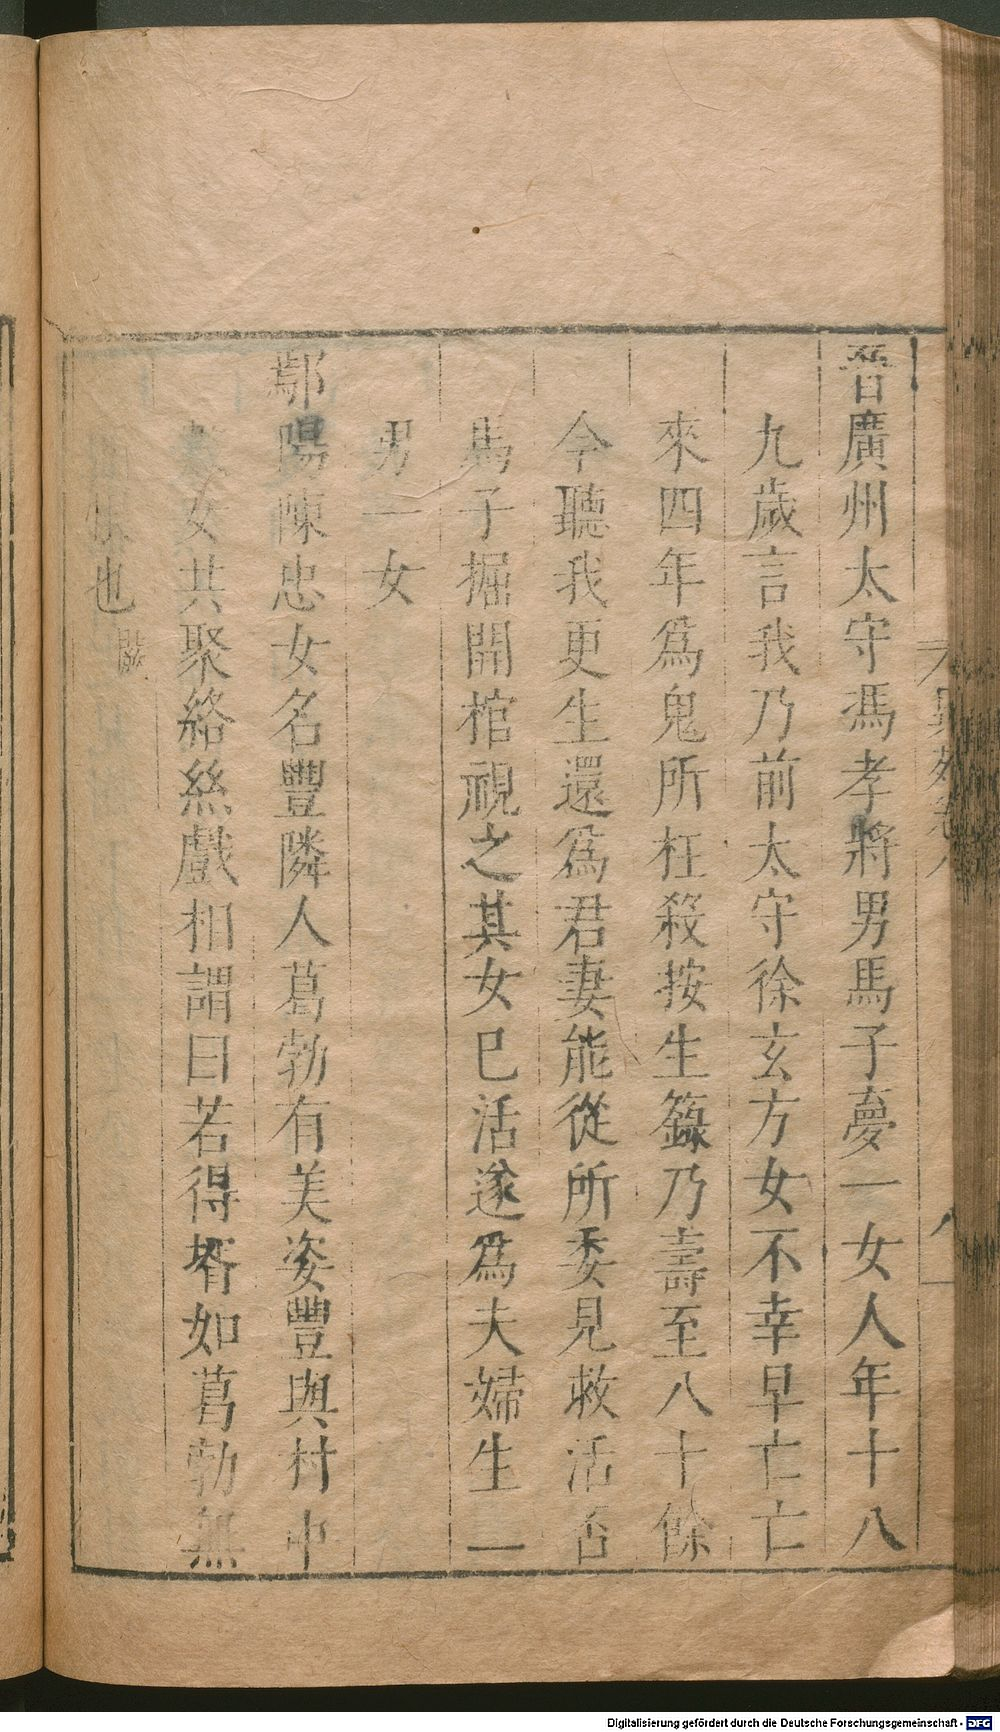 晉廣州太守馮孝將男馬子夢一女人年十八
九歲言我乃前太守徐玄方女不幸早亡亡
來四年爲鬼所枉殺按生籙乃壽至八十餘
今聽我更生還爲君妻能從所委見救活否
馬子掘開棺視之其女已活遂爲夫婦生一
男一女
鄱陽陳忠女名豐隣人葛勃有美姿豐與村中
女共聚絡絲戲相謂曰若得壻如葛勃無
恨也
異苑卷八
Digitalisierung gefördert durch die Deutsche Forschungsgemeinschaft - DFG